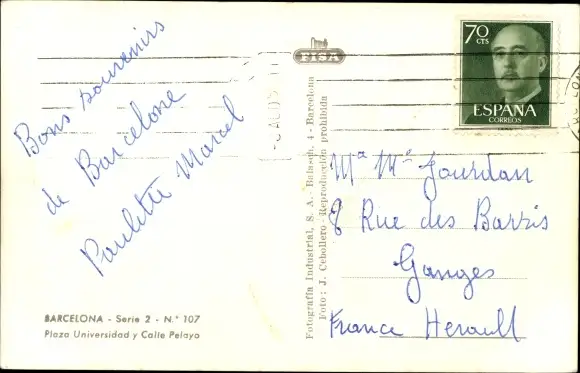 Bons souvenirs
de Barcelone
Paulette Marcel
BARCELONA - Serie 2 - N.° 107
Plaza Universidad y Calle Pelayo
FISA
Fotografía Industrial, S. A. - Balasch, 4 - Barcelona
Foto: J. Cebollero - Reproducción prohibida
70
CTS
ESPAÑA
CORREOS
Jourdan
8 Rue des Barris
Ganges
France Herault